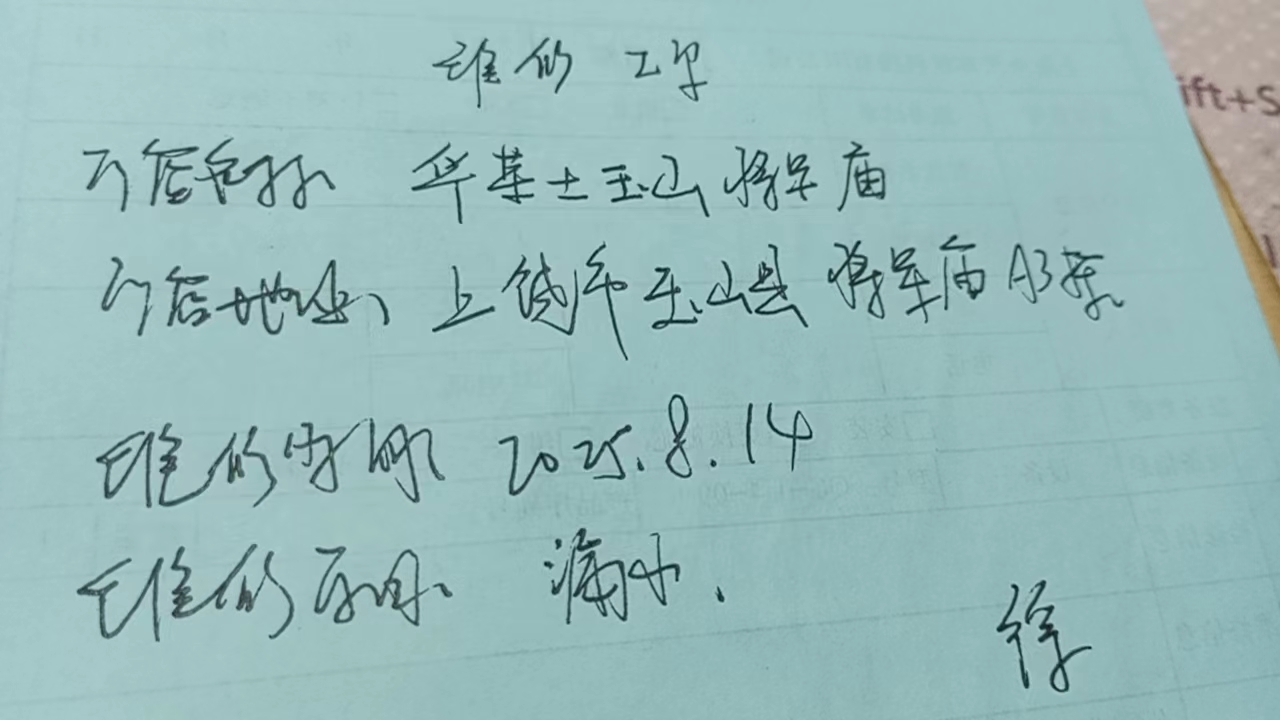 维修工单
门店名称 华莱士玉山将军庙
门店地址 上饶市玉山县将军庙A3栋
维修时间 2025.8.14
维修项目 漏水.
徐
ift+S